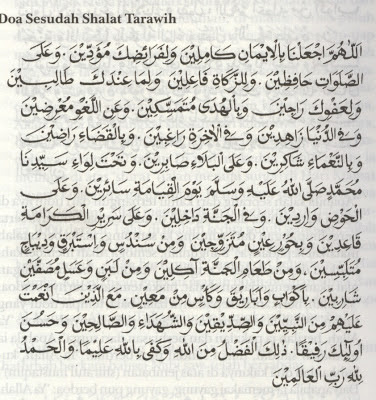 Doa Sesudah Shalat Tarawih
اَللّٰهُمَّ اجْعَلْنَا بِالْإِيْمَانِ كَامِلِيْنَ وَلِفَرَائِضِكَ مُؤَدِّيْنَ. وَعَلَى
الصَّلَوَاتِ حَافِظِيْنَ. وَلِلزَّكَاةِ فَاعِلِيْنَ. وَلِمَا عِنْدَكَ طَالِبِيْنَ
وَلِعَفْوِكَ رَاجِيْنَ وَبِالْهُدَى مُتَمَسِّكِيْنَ. وَعَنِ اللَّغْوِ مُعْرِضِيْنَ
وَفِي الدُّنْيَا زَاهِدِيْنَ وَفِي الْاٰخِرَةِ رَاغِبِيْنَ. وَبِالْقَضَاءِ رَاضِيْنَ
وَبِالنَّعْمَاءِ شَاكِرِيْنَ. وَعَلَى الْبَلَاءِ صَابِرِيْنَ. وَتَحْتَ لِوَاءِ سَيِّدِنَا
مُحَمَّدٍ صَلَّى اللهُ عَلَيْهِ وَسَلَّمَ يَوْمَ الْقِيَامَةِ سَائِرِيْنَ. وَعَلَى
الْحَوْضِ وَارِدِيْنَ. وَفِي الْجَنَّةِ دَاخِلِيْنَ. وَعَلَى سَرِيْرِ الْكَرَامَةِ
قَاعِدِيْنَ وَبِحُوْرٍ عِيْنٍ مُتَزَوِّجِيْنَ وَمِنْ سُنْدُسٍ وَاِسْتَبْرَقٍ وَدِيْبَاجٍ
مُتَلَبِّسِيْنَ. وَمِنْ طَعَامِ الْجَنَّةِ اٰكِلِيْنَ. وَمِنْ لَبَنٍ وَعَسَلٍ مُصَفَّيْنِ
شَارِبِيْنَ. بِأَكْوَابٍ وَاَبَارِيْقَ وَكَأْسٍ مِنْ مَعِيْنٍ. مَعَ الَّذِيْنَ اَنْعَمْتَ
عَلَيْهِمْ مِنَ النَّبِيِّيْنَ وَالصِّدِّيْقِيْنَ وَالشُّهَدَاءِ وَالصَّالِحِيْنَ وَحَسُنَ
اُولٰئِكَ رَفِيْقًا. ذٰلِكَ الْفَضْلُ مِنَ اللهِ وَكَفَى بِاللهِ عَلِيْمًا. وَالْحَمْدُ
لِلّٰهِ رَبِّ الْعَالَمِيْنَ